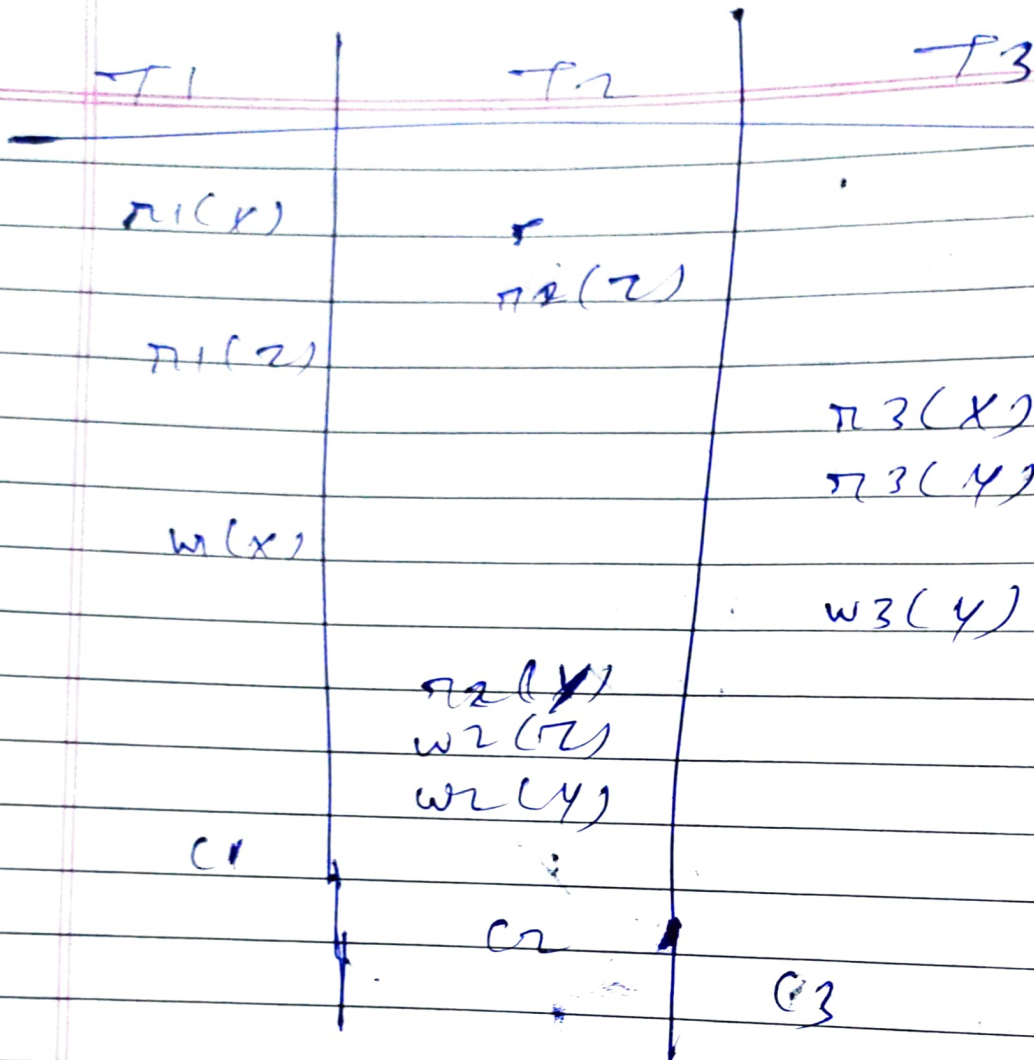 T1 T2 T3
r1(X)
r2(Z)
r1(Z)
r3(X)
r3(Y)
w1(X)
w3(Y)
r2(Y)
w2(Z)
w2(Y)
C1
C2
C3